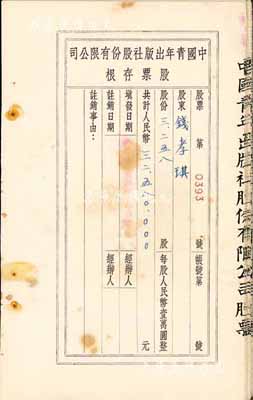 中國青年出版社股份有限公司
股票存根
股票 第 0393 號 帳號第 號
股東 錢孝琪
股份 三、二五八 股 每股人民幣壹萬圓整
共計人民幣 三二、五八〇、〇〇〇 元
填發日期 經辦人
註銷日期 經辦人
註銷事由：
中國青年出版社股份有限公司股票